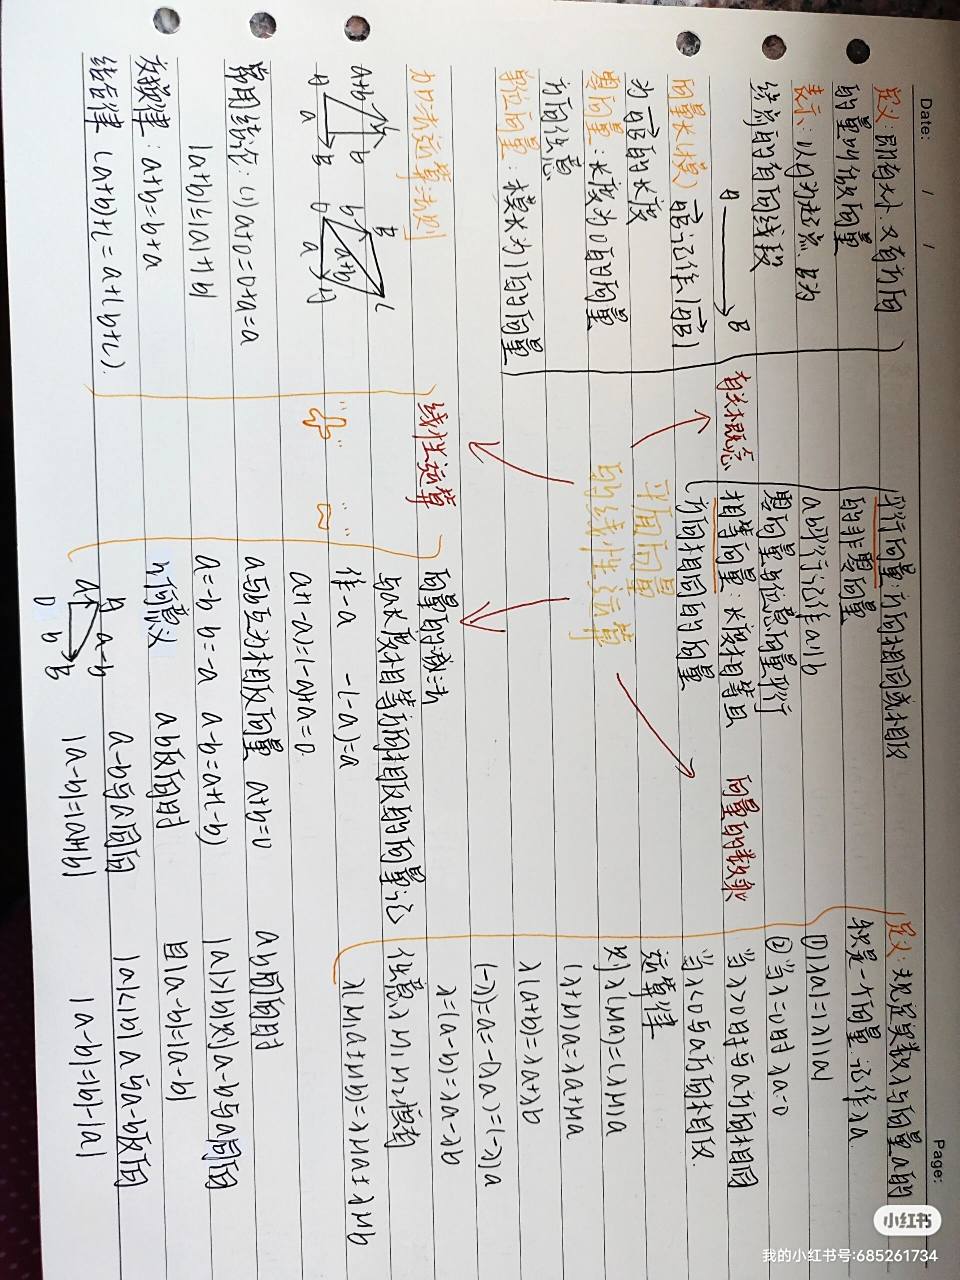 Date: / /
Page:
平面向量
的线性运算
有关概念
定义：既有大小又有方向
的量叫做向量
表示：以A为起点、B为
终点的有向线段
A B
向量长(模) AB记作|AB|
为AB的长度
零向量：长度为0的向量
方向任意
单位向量：模长为1的向量
平行向量：方向相同或相反
的非零向量
a、b平行记作a∥b
零向量与任意向量平行
相等向量：长度相等且
方向相同的向量
线性运算
加法运算法则
a+b b a A B
O a A b B C a+b
常用结论：(1) a+0=0+a=a
|a+b|≤|a|+|b|
交换律：a+b=b+a
结合律 (a+b)+c=a+(b+c).
向量的减法
与a长度相等方向相反的向量记
作-a -(-a)=a
a+(-a)=(-a)+a=0
a与b互为相反向量 a+b=0
a=-b b=-a a-b=a+(-b)
义 意何几
a、b反向时
a-b与a同向
|a-b|=|a|+|b|
A a-b
a
O b B
a、b同向时
|a|>|b|时 a-b与a同向
且|a-b|=|a|-|b|
|a|<|b| a与a-b反向
|a-b|=|b|-|a|
向量的数乘
定义：规定实数λ与向量a的
积是一个向量 记作λa
①|λa|=|λ||a|
②当λ=0时 λa=0
当λ>0时与a方向相同
当λ<0与a方向相反.
运算律
则λ(μa)=(λμ)a
(λ+μ)a=λa+μa
λ(a+b)=λa+λb
(-λ)a=-(λa)=(-λ)a
λ(a-b)=λa-λb
小红书
我的小红书号:685261734